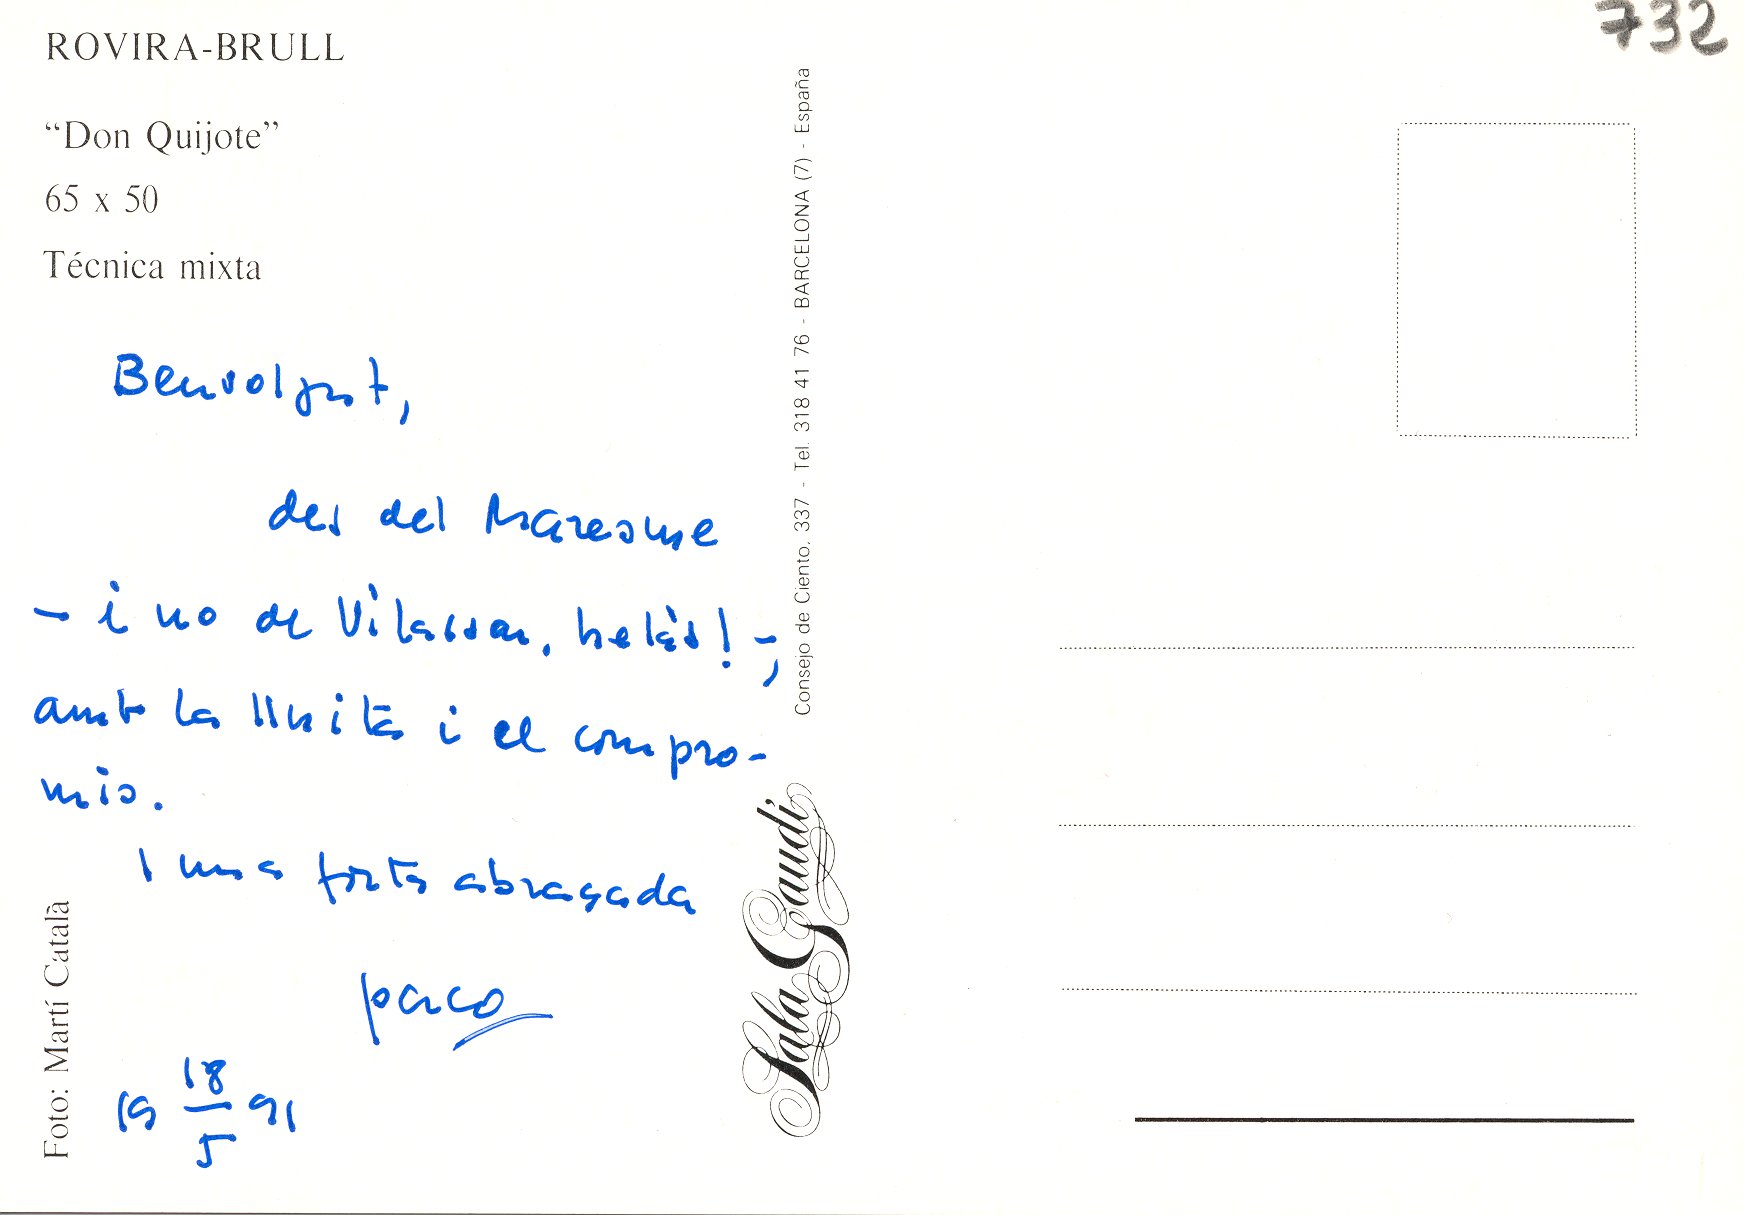 732
ROVIRA-BRULL
“Don Quijote”
65 x 50
Técnica mixta
Benvolgut,
des del Maresme
- i no de Vilassar, helàs! -,
amb la lluita i el compro-
mís.
I una forta abraçada
paco
19 18/5 91
Foto: Martí Català
Sala Gaudí
Consejo de Ciento, 337 - Tel. 318 41 76 - BARCELONA (7) - España